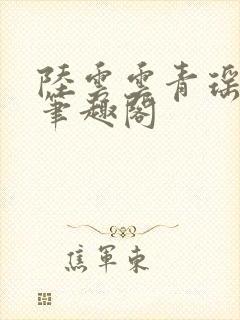 陸雲雲青瑤
筆趣閣
焦軍東